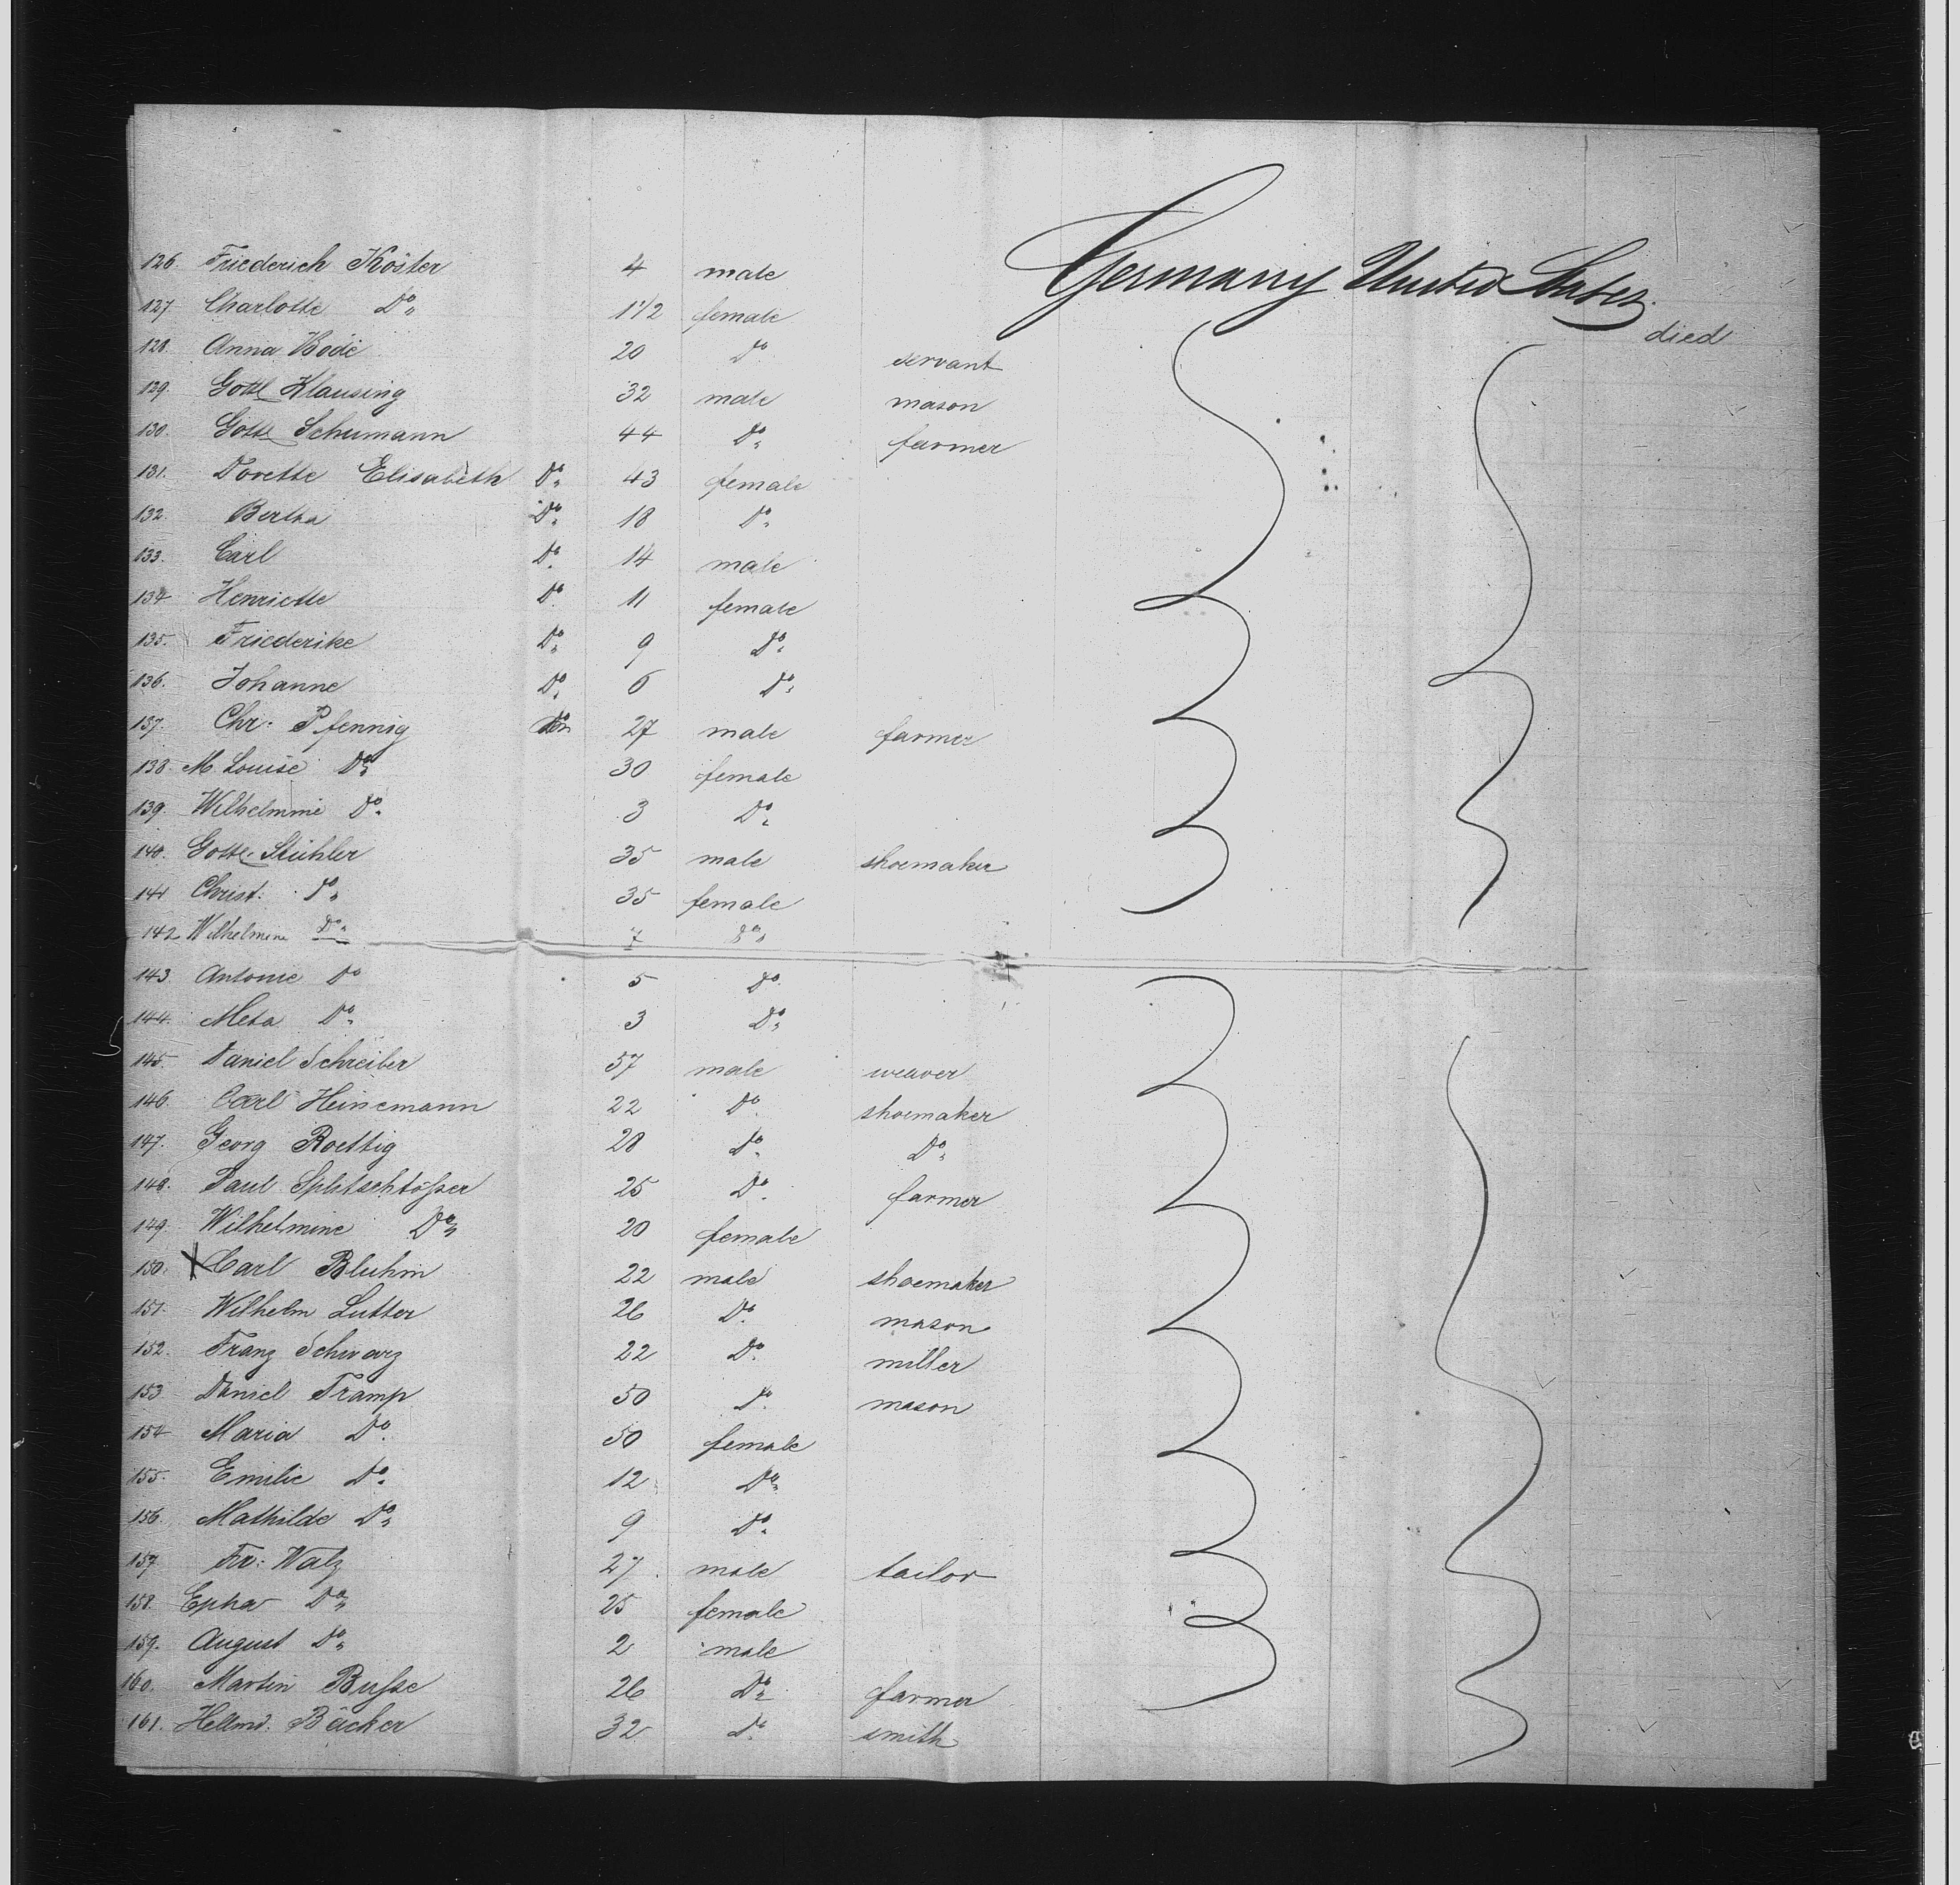 Germany United States
126. Friederich Köster 4 male
127. Charlotte Do 1 1/2 female died
128. Anna Bode 20 Do servant
129. Gottl. Klausing 32 male mason
130. Gottl. Schumann 44 Do farmer
131. Dorette Elisabeth Do 43 female
132. Berta Do 18 Do
133. Carl Do 14 male
134 Henriette Do 11 female
135. Friederike Do 9 Do
136. Johanne Do 6 Do
137. Chr. Pfennig 27 male farmer
138. M. Louise Do 30 female
139. Wilhelmine Do 3 Do
140. Gottl. Stühler 35 male shoemaker
141 Christ: Do 35 female
142 Wilhelmine Do 7 Do
143. Antonie Do 5 Do
144. Meta Do 3 Do
145. Daniel Schreiber 57 male weaver
146. Carl Heinemann 22 Do shoemaker
147. Georg Roettig 28 Do Do
148. Paul Splitschtößer 25 Do farmer
149. Wilhelmine Do 20 female
150. X Carl Bluhm 22 male shoemaker
151. Wilhelm Lutter 26 Do mason
152. Franz Schwarz 22 Do miller
153 Daniel Tramp 50 Do mason
154 Maria Do 50 female
155. Emilie Do 12 Do
156. Mathilde Do 9 Do
157 Fr: Walz 27 male tailor
158. Epha Do 25 female
159. August Do 2 male
160. Martin Bußse 26 Do farmer
161. Hellmd. Bäcker 32 Do smith